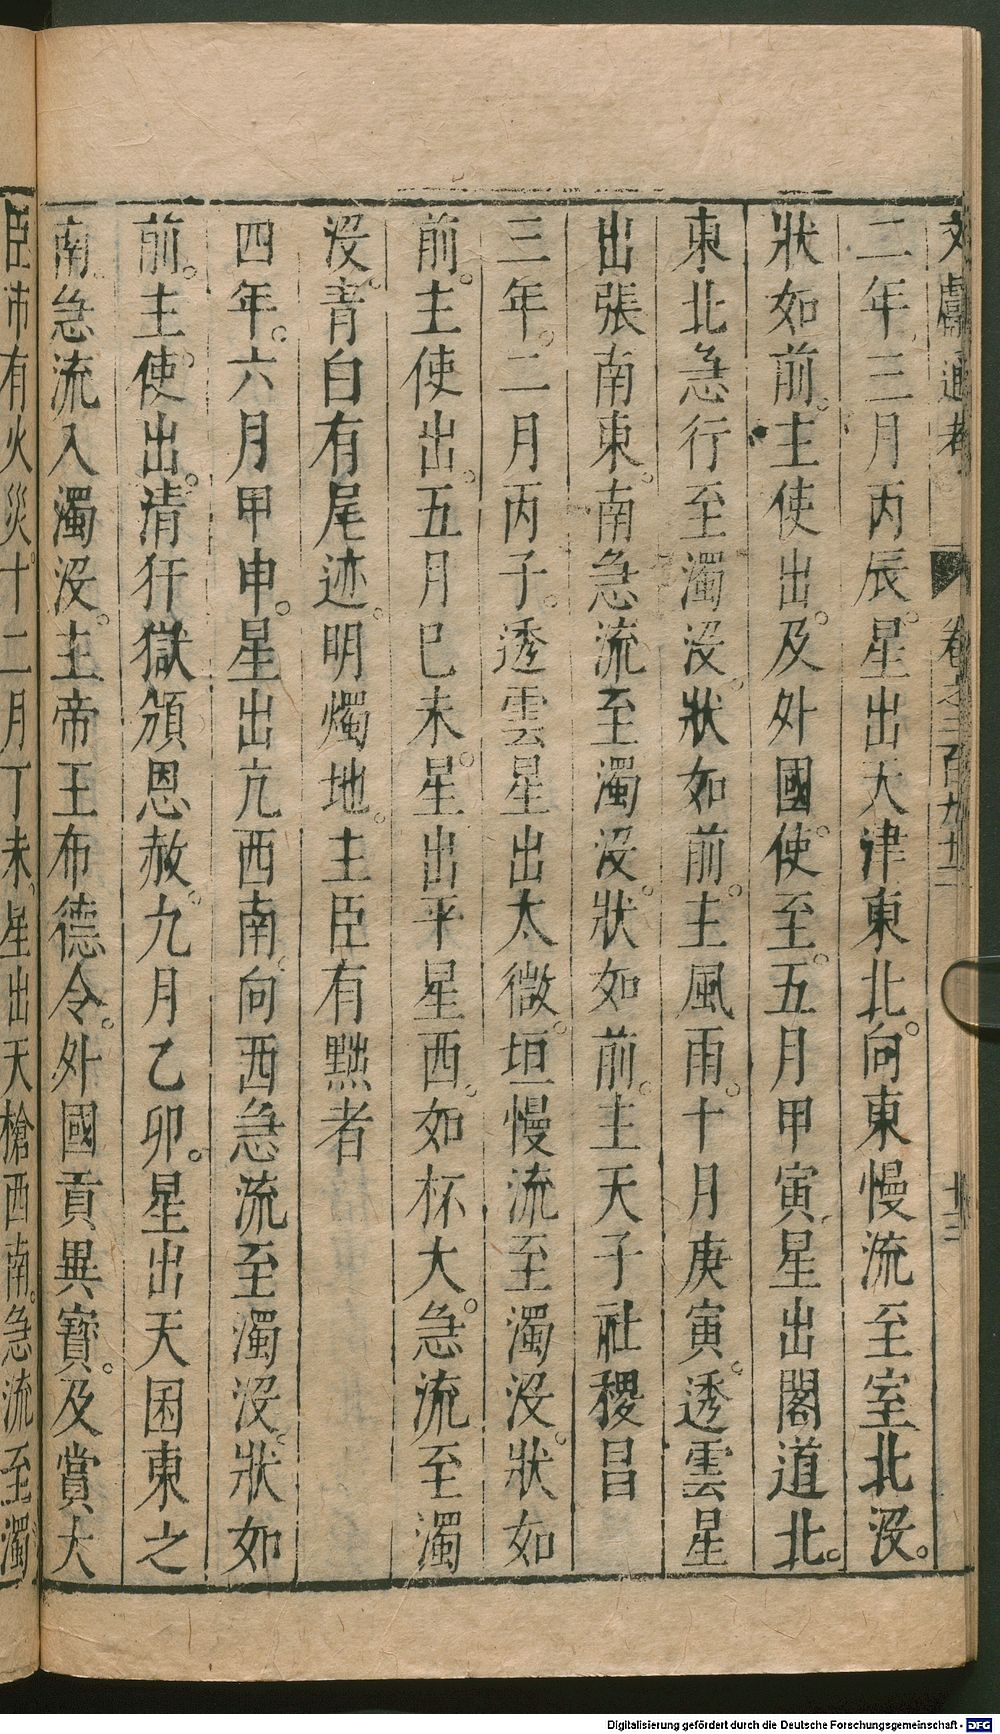 文獻通考　卷之二百九十二　十三
二年三月丙辰。星出天津東北。向東慢流至室北沒。
狀如前。主使出。及外國使至。五月甲寅星出閣道北。
東北急行至濁沒。狀如前。主風雨。十月庚寅。透雲星
出張南東。南急流至濁沒。狀如前。主天子社稷昌
三年。二月丙子。透雲星出太微。垣慢流至濁沒。狀如
前。主使出。五月巳未。星出平星西。如杯大。急流至濁
沒。青白有尾迹。明燭地。主臣有黜者
四年。六月甲申。星出亢西南。向西急流至濁沒。狀如
前。主使出。清犴獄頒恩赦。九月乙卯。星出天囷東之
南急流入濁沒。主帝王布德令。外國貢異寶。及賞大
臣沛有火災。十二月丁未。星出天槍西南。急流至濁
Digitalisierung gefördert durch die Deutsche Forschungsgemeinschaft - DFG